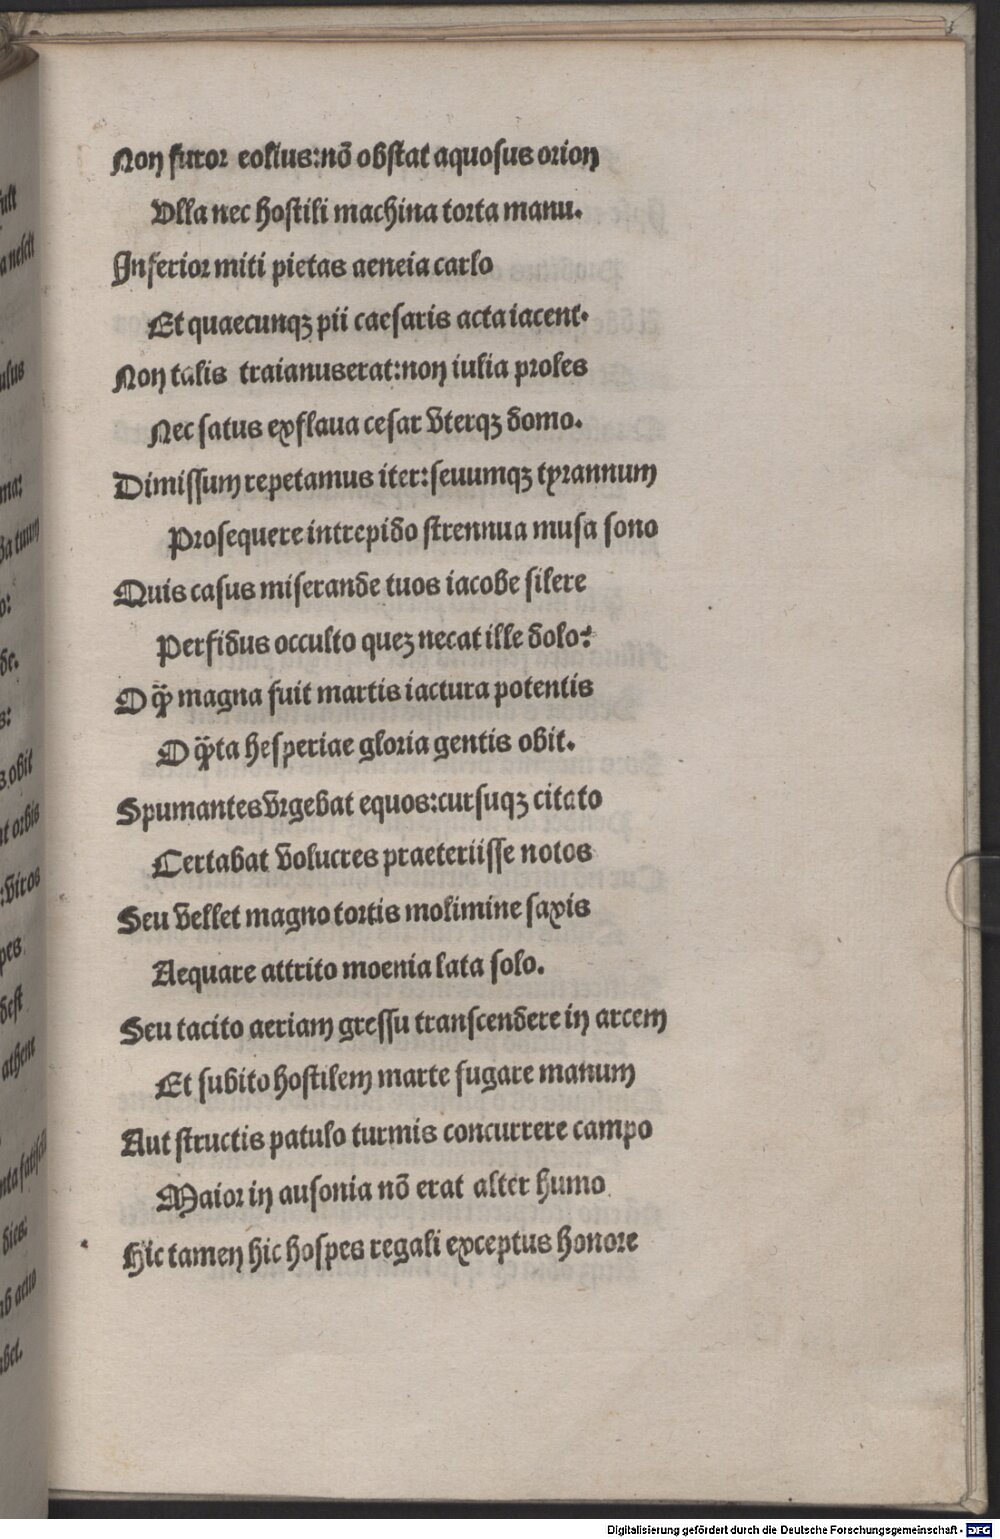 Non furor eolius:nō obstat aquosus orion
Vlla nec hostili machina torta manu.
Inferior miti pietas aeneia carlo
Et quaecunqꝫ pii caesaris acta iacent.
Non talis traianuserat:non iulia proles
Nec satus exflaua cesar vterqꝫ domo.
Dimissum repetamus iter:seuumqꝫ tyrannum
Prosequere intrepido strennua musa sono
Quis casus miserande tuos iacobe silere
Perfidus occulto queꝫ necat ille dolo?
O q̄ magna fuit martis iactura potentis
O q̄ta hesperiae gloria gentis obit.
Spumantesvrgebat equos:cursuqꝫ citato
Certabat volucres praeteriisse notos
Seu vellet magno tortis molimine saxis
Aequare attrito moenia lata solo.
Seu tacito aeriam gressu transcendere in arcem
Et subito hostilem marte fugare manum
Aut structis patulo turmis concurrere campo
Maior in ausonia nō erat alter humo
Hic tamen hic hospes regali exceptus honore
Digitalisierung gefördert durch die Deutsche Forschungsgemeinschaft - DFG